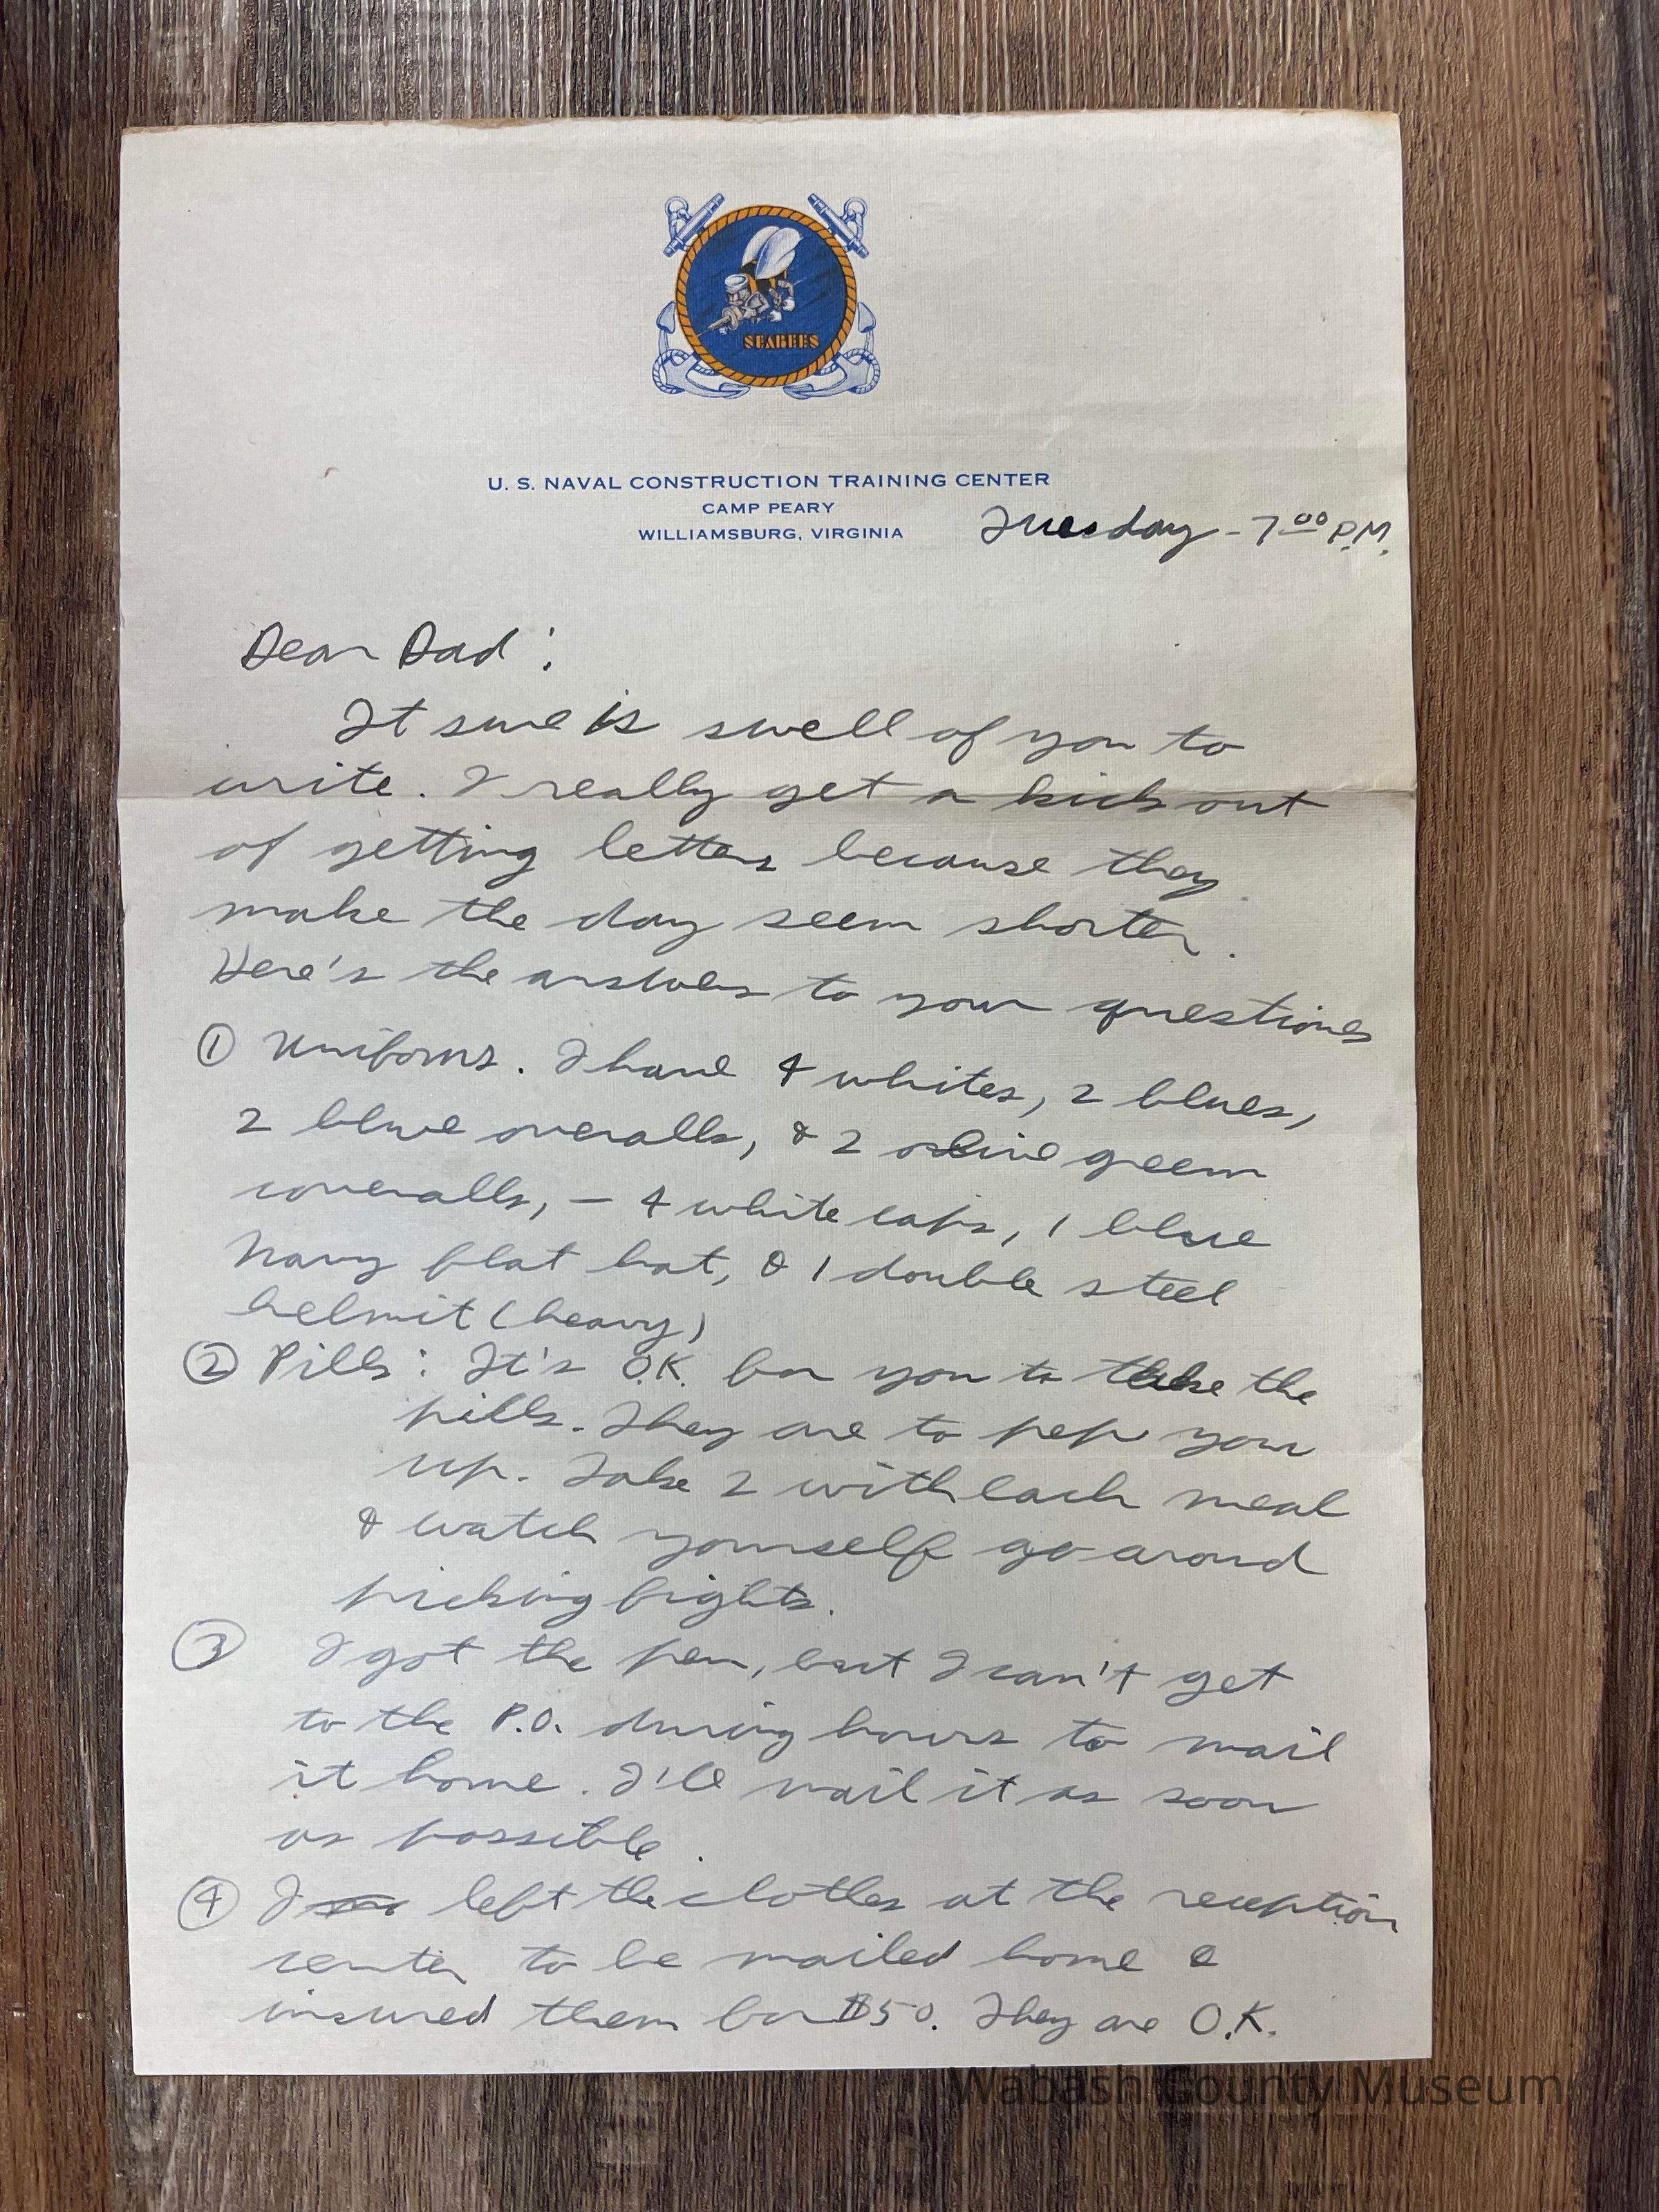 SEABEES
U. S. NAVAL CONSTRUCTION TRAINING CENTER
CAMP PEARY
WILLIAMSBURG, VIRGINIA
Tuesday - 7 00 P.M.
Dear Dad:
It sure is swell of you to
write. I really get a kick out
of getting letters because they
make the day seem shorter.
Here's the answers to your questions
① Uniforms. I have 4 whites, 2 blues,
2 blue overalls, & 2 olive green
coveralls, - 4 white caps, 1 blue
Navy flat hat, & 1 double steel
helmit (heavy)
② Pills: It's O.K. for you to take the
pills. They are to pep you
up. Take 2 with each meal
& watch yourself go around
picking fights.
③ I got the pen, but I can't get
to the P.O. during hours to mail
it home. I'll mail it as soon
as possible.
④ I left the clothes at the reception
center to be mailed home &
insured them for $50. They are O.K.
Wabash County Museum